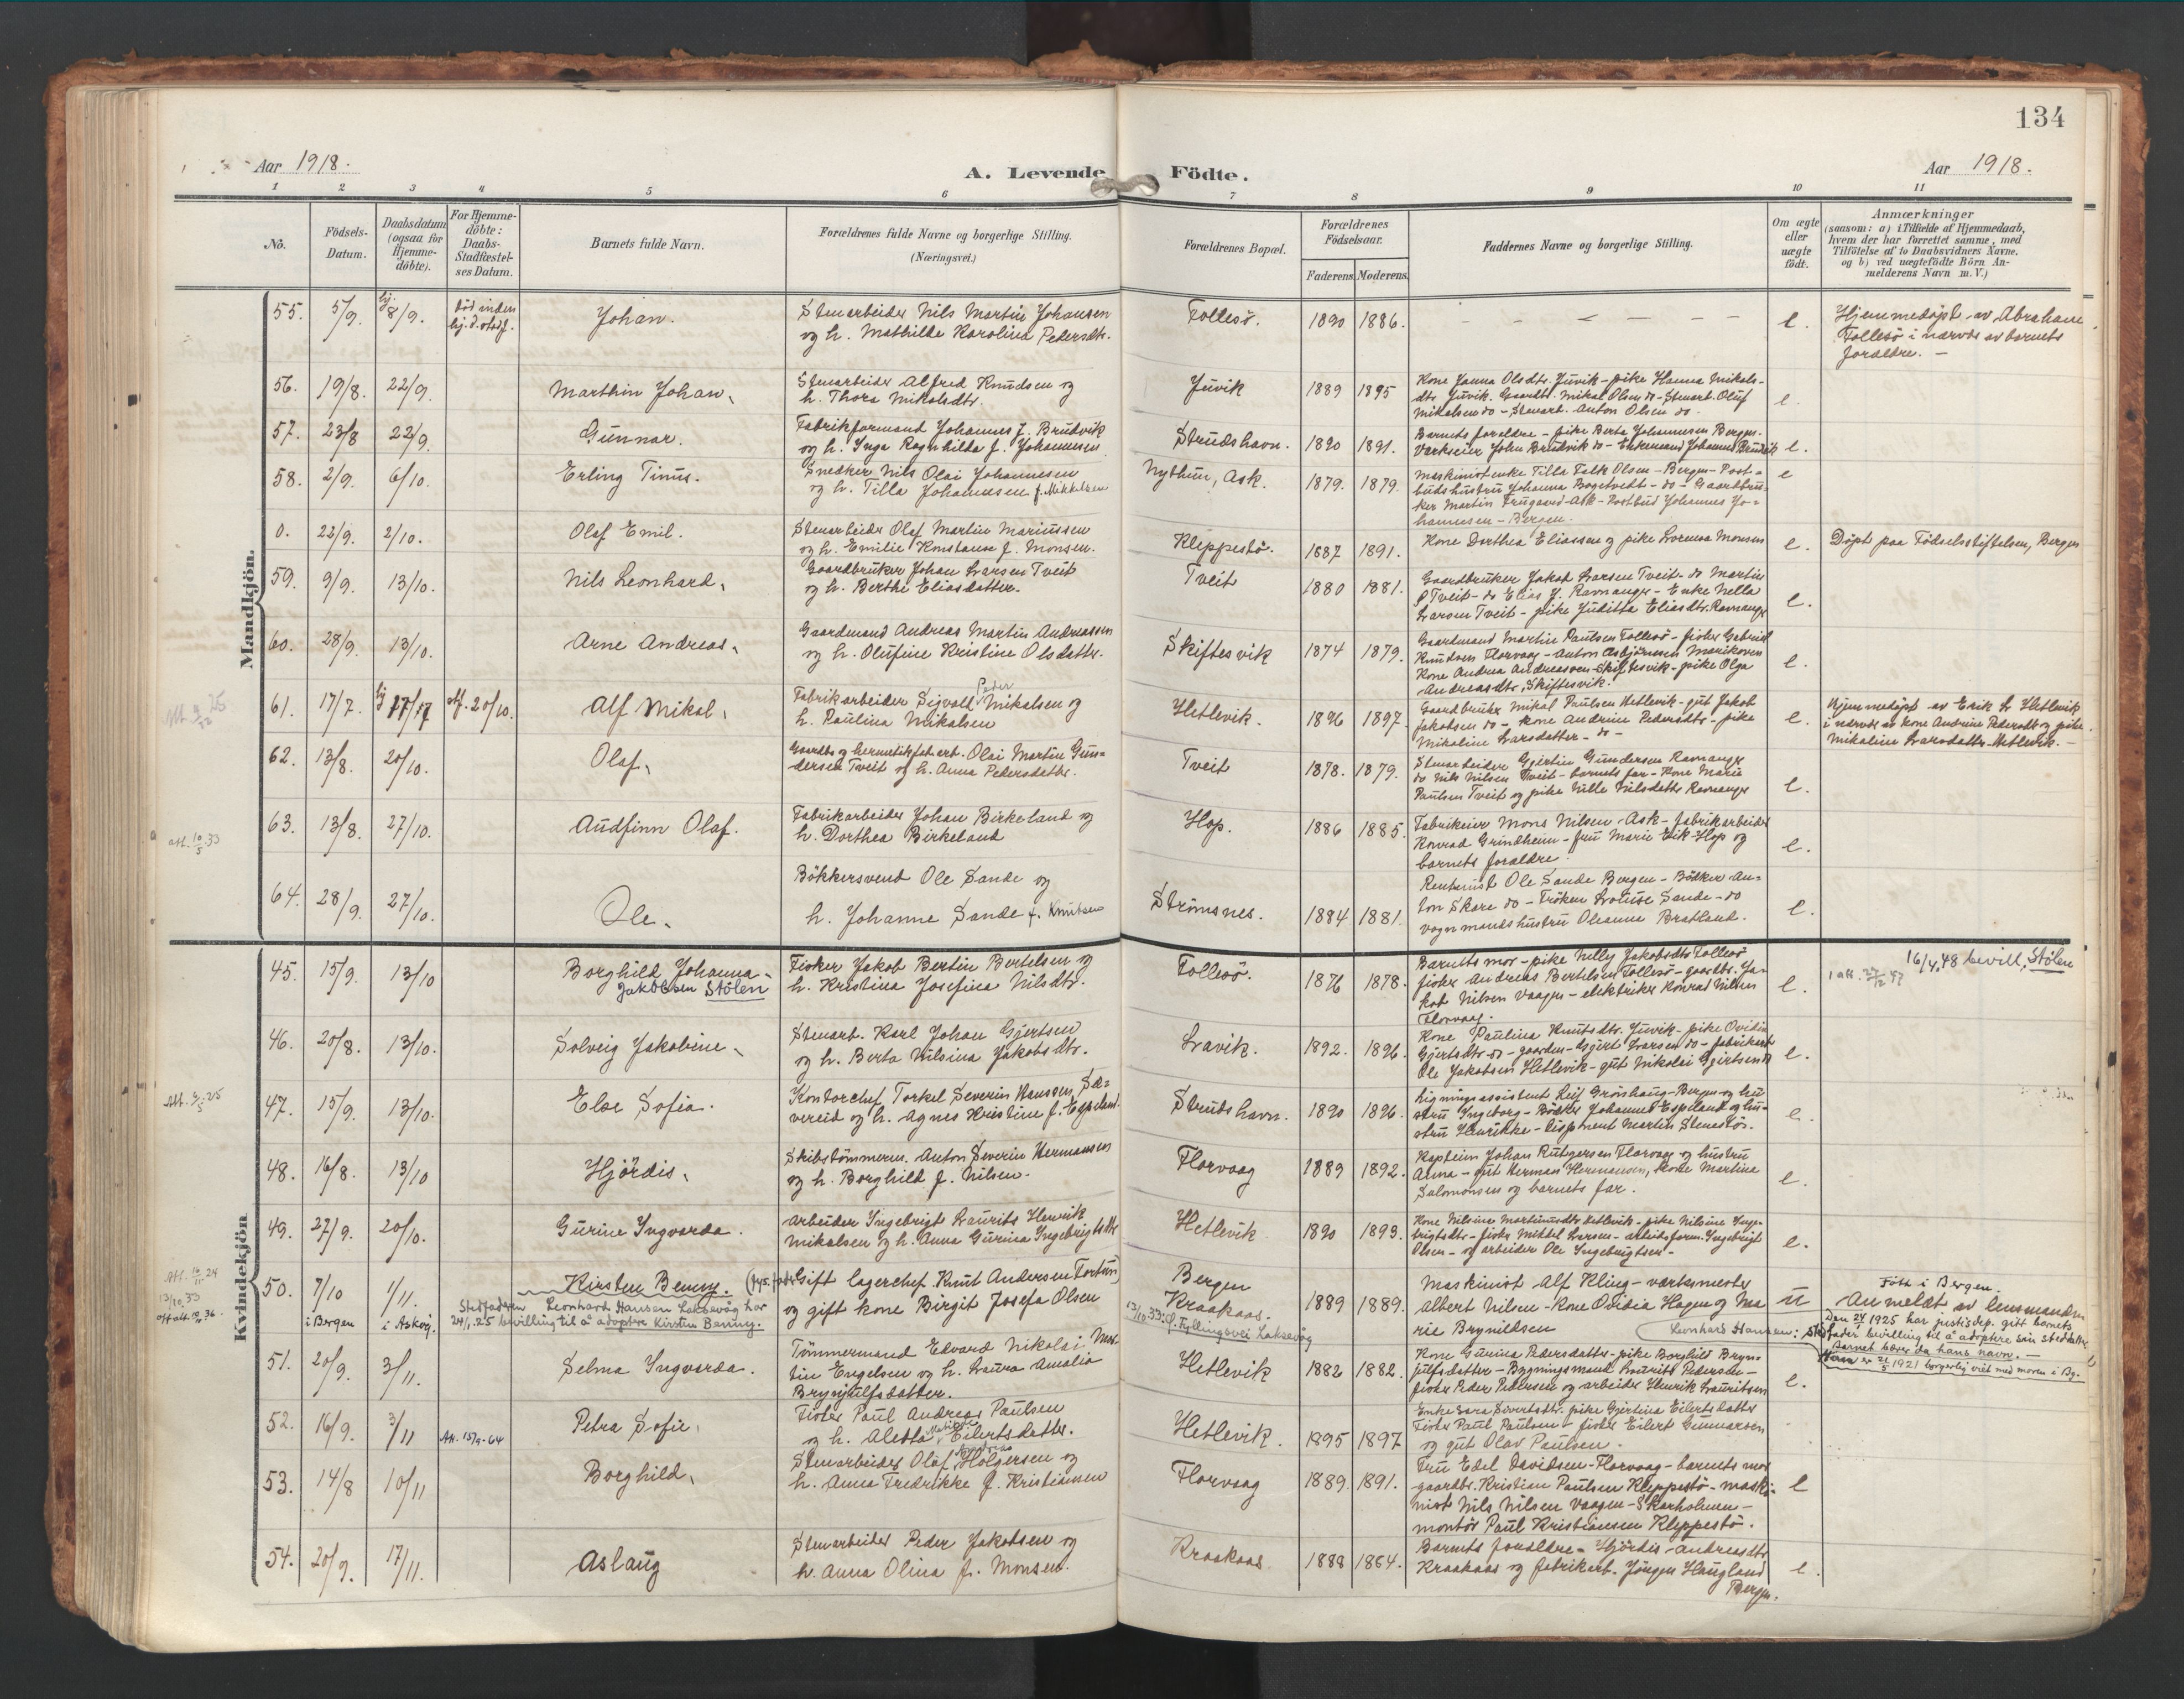 134
Aar 1918.
A. Levende Födte.
Aar 1918.
1 2 3 4 5 6 7 8 9 10 11
No.
Födsels-Datum.
Daabsdatum (ogsaa for Hjemme-döbte).
For Hjemme-döbte: Daabs-Stadfæstel-ses Datum.
Barnets fulde Navn.
Forældrenes fulde Navne og borgerlige Stilling. (Næringsvei.)
Forældrenes Bopæl.
Forældrenes Födselsaar.
Faderens. Moderens.
Faddernes Navne og borgerlige Stilling.
Om ægte eller uægte födt.
Anmærkninger
(saasom: a) i Tilfælde af Hjemmedaab,
hvem der har forrettet samme, med
Tilföielse af to Daabsvidners Navne,
og b) ved uægtefödte Börn An-
melderens Navn m. V.)
Mandkjön.
55. 5/9. hj. 8/9. död inden hj.d. stadf. Johan.
Stenarbeider Nils Martin Johansen
og h. Mathilde Karolina Pedersdtr.
Follesö. 1890 1886. e.
Hjemmedöpt av Abraham
Follesö i nærvær av barnets
forældre. —
56. 19/8. 22/9. Marthin Johan.
Stenarbeider Alfred Knudsen og
h. Thora Mikalsdtr.
Juvik 1889 1895
Kone Janna Olsdtr. Juvik - pike Hanna Mikals-
dtr. Juvik. Gaardbr. Mikal Olsen do - Stenarb. Oluf
Mikalsen do - Stenarb. Anton Olsen do. e.
57. 23/8 22/9. Gunnar.
Fabrikformand Johannes J. Brudvik
og h. Inga Ragnhilda f. Johannesen
Strudshavn. 1890 1891.
Barnets forældre - pike Berta Johannesen Bergen.
Værkseier John Brudvik do - Enkemand Johannes Brudvik e.
58. 2/9. 6/10. Erling Tinus.
Snedker Nils Olai Johannesen
og h. Tilla Johannesen f. Mikkelsen
Nythun, Ask. 1879. 1879.
Maskinistenke Tilla Falk Olsen - Bergen - Post-
budshustru Johanna Bogetvedt - do - Gaardbru-
ker Martin Frugaard - Ask - Postbud Johannes Jo-
hannesen - Bergen. e
0. 22/9. 2/10. Olaf Emil.
Stenarbeider Olaf Martin Mariussen
og h. Emilie Konstanse f. Monsen.
Kleppestö. 1887 1891.
Kone Dorthea Eliassen og pike Lorensa Monsen e.
Döpt paa Födselsstiftelsen, Bergen
59. 9/9. 13/10. Nils Leonhard.
Gaardbruker Johan Larsen Tveit
og h. Berthe Eliasdatter.
Tveit 1880 1881.
Gaardbruker Jakob Larsen Tveit - do Martin
P Tveit - do Elias J. Ramanger - Enke Nella
Larsen Tveit - pike Juditta Eliasdtr. Ramanger e.
60. 28/9. 13/10. Arne Andreas.
Gaardmand Andreas Martin Andreassen
og h. Olufine Kristine Olsdatter.
Skiftesvik 1874 1879.
Gaardmand Martin Paulsen Follesö - fisker Gabriel
Knudsen Florvaag - Anton Asbjörnsen Marikoven
Kone Andrea Andreassen - Skiftesvik - pike Olga
Andreasdtr. Skiftesvik. e.
61. 17/7. hj 17/7 stf. 20/10. Alf Mikal.
Fabrikarbeider Sigvald Peder Mikalsen og
h. Paulina Mikalsen
Hetlevik. 1896 1897.
Gaardbruker Mikal Paulsen Hetlevik - gut Jakob
Jakobsen do - kone Andrine Pedersdtr - pike
Mikaline Larsdatter - do - e.
Hjemmedöpt av Erik L. Hetlevik
i nærvær av kone Andrine Pedersdtr og pike
Mikaline Larsdatter Hetlevik. -
62. 13/8. 20/10. Olaf.
Gaardbr. og hermetikfab.arb. Olai Martin Gun-
dersen Tveit og h. Anna Pedersdatter.
Tveit 1878. 1879.
Stenarbeider Gjertin Gundersen Ramanger
do Nils Nilsen Tveit - barnets far - Kone Marie
Paulsen Tveit og pike Nille Nilsdatter Ramanger e.
att. 10/5.33
63. 13/8. 27/10. Audfinn Olaf.
Fabrikarbeider Johan Birkeland og
h. Dorthea Birkeland
Hop. 1886 1885.
Fabrikeier Mons Nilsen - Ask - fabrikarbeider
Konrad Grindheim - fru Marie Eik - Hop og
barnets forældre. e.
64. 28/9. 27/10. Ole.
Bökkersvend Ole Sande og
h. Johanne Sande f. Knutsen
Strömsnes. 1884 1881.
Rentenist Ole Sande Bergen - Bödker An-
ton Skare do - Fröken Lovise Sande - do
vognmandshustru Oleanne Bratland. e.
Kvindekjön
45. 15/9. 13/10 Borghild Johanna.
Jakobsen Stölen
Fisker Jakob Bertin Bertelsen og
h. Kristina Josefina Nilsdtr.
Follesö. 1876 1878.
Barnets mor - pike Nelly Jakobsdtr Follesö
fisker Andreas Bertelsen Follesö - gaardbr. Ja-
kob Nilsen Vaagen - elektriker Konrad Nilsen
Florvaag. e.
1 att. 27/2 47
16/4.48 bevill. Stölen
46. 20/8. 13/10. Solveig Jakobine.
Stenarb. Karl Johan Gjertsen
og h. Berta Nilsina Jakobsdtr.
Lavik. 1892. 1896.
Kone Paulina Knutsdtr. Juvik - pike Ovidia
Gjertsdtr do - gaardm. Gjert Larsen do - fabrikarb
Ole Jakobsen Hetlevik - gut Nikolai Gjertsen do e.
Att. 9/5-25
47. 15/9. 13/10. Else Sofia.
Kontorchef Torkel Severin Hansen Sæ-
vereid og h. Agnes Kristine f. Espeland.
Strudshavn. 1890 1896.
Ligningsassistent Leif Grönhaug - Bergen og hu
stru Ingeborg - Bödker Johannes Espeland og hu-
stru Henrikke - Disponent Martin Stenestö. e.
48. 16/8. 13/10 Hjördis.
Skibstömmerm. Anton Severin Hermansen
og h. Borghild f. Nilsen.
Florvaag 1889 1892.
Kaptein Johan Rutgersen Florvaag og hustru
Anna - gut Herman Hermansen, kone Martina
Salomonsen og barnets far. e.
49. 27/9. 20/10. Gurine Ingvarda.
Arbeider Ingebrigt Laurits Henrik
Mikalsen og h. Anna Gurina Ingebrigtsdtr
Hetlevik 1890 1893.
Kone Nilsine Martinusdtr Hetlevik - pike Nilsine Inge-
brigtsdtr - fisker Mikkel Larsen - arbeidsform. Ingebrigt
Olsen - og arbeider Ole Ingebrigtsen - e.
Att. 16/11 24
13/10.33
50. 7/10 i Bergen 1/11. i Askøy. Kirsten Benny.
Stedfaderen Leonhard Hansen Laksevåg har
24/1.25 bevilling til å adoptere Kirsten Benny.
Gift lagerchef Knut Andersen Fortun
og gift kone Birgit Josefa Olsen
Bergen
Kraakaas.
13/10.33: Fyllingsvei Laksevåg
1889 1889.
Maskinist Alf Kling - værksmester
Albert Nilsen - Kone Ovidia Hagen og Ma
rie Brynildsen u
Född i Bergen.
Anmeldt av lensmanden
Leonhard Hansen: stedfader
Den 24/1 1925 har justisdep. gitt barnets
bevilling til å adoptere sin steddatter
Barnet bærer da hans navn. —
Han er 21/5 1921 borgerlig viet med moren i Bg.
51. 20/9. 3/11. Selma Ingvarda.
Tömmermand Edvard Nikolai Mar-
tin Engelsen og h. Laura Amalia
Brynjulfsdatter.
Hetlevik 1882 1882.
Kone Gurina Pedersdatter - pike Borghild Bryn-
julfsdatter - Bygningsmand Laurits Pedersen -
fisker Peder Pedersen og arbeider Henrik Lauritsen e.
52. 16/9. 3/11 Att. 15/9-64 Petra Sofie.
Fisker Paul Andreas Paulsen
og h. Aletta Eilertsdatter.
Hetlevik. 1895 1897
Enke Sara Sivertsdtr. pike Gjertina Eilertsdatter
Fisker Paul Paulsen - fisker Eilert Gunnarsen
og gut Olav Paulsen.
53. 14/8 10/11 Borghild.
Stenarbeider Olaf Andreas Holgersen og
h. Anna Fredrikke f. Kristiansen
Florvaag 1889. 1891.
Fru Edel Davidsen - Florvaag - barnets mor
gaardbr. Kristian Paulsen Kleppestö - maski-
nist Nils Nilsen Vaagen - Skarholmen -
montör Paul Kristiansen Kleppestö. e
54. 20/9. 17/11. Aslaug
Stenarbeider Peder Jakobsen og
h. Anna Olina f. Monsen.
Kraakaas 1888 1864.
Barnets forældre - Hjördis Andreasdtr
Kraakaas og fabrikarb. Jörgen Haugland
Bergen. e.